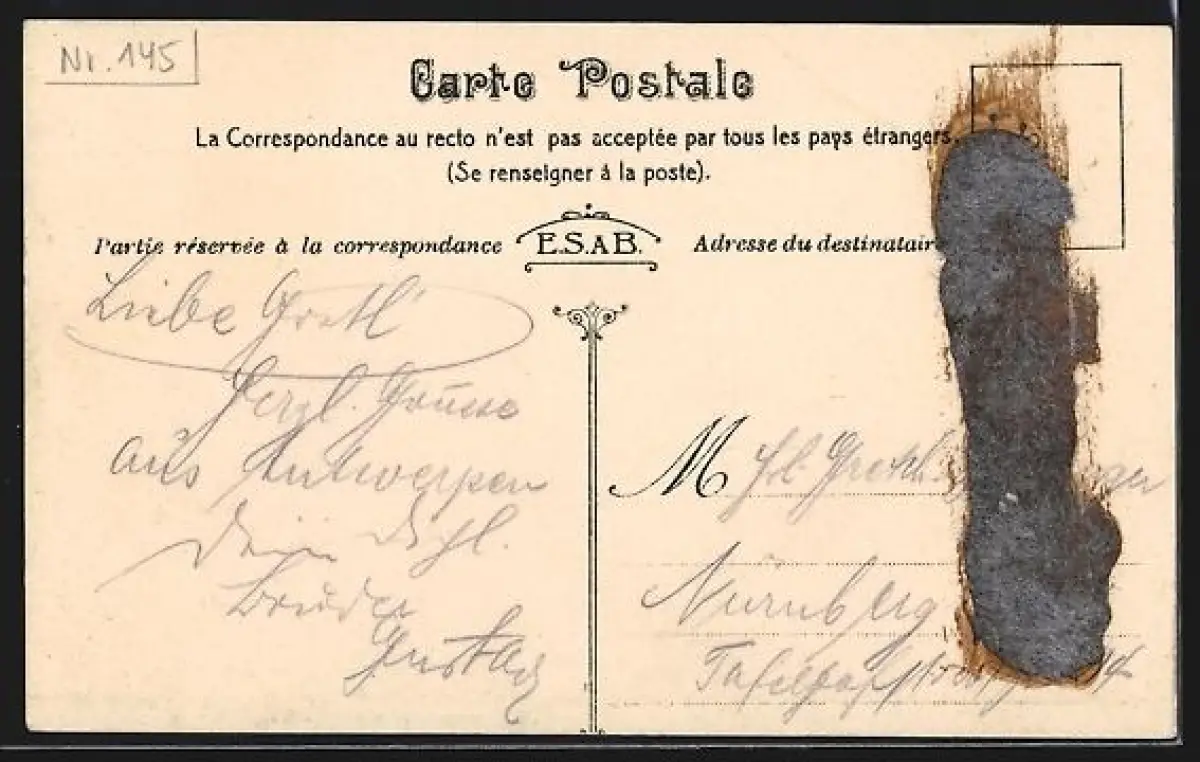 Nr. 145
Carte Postale
La Correspondance au recto n'est pas acceptée par tous les pays étrangers.
(Se renseigner à la poste).
Partie réservée à la correspondance
E.S.A B.
Adresse du destinataire
Liebe Gretl
Herzl. Grüsse
aus Antwerpen
Dein
Bruder
Gustav
M Frl.
Nürnberg